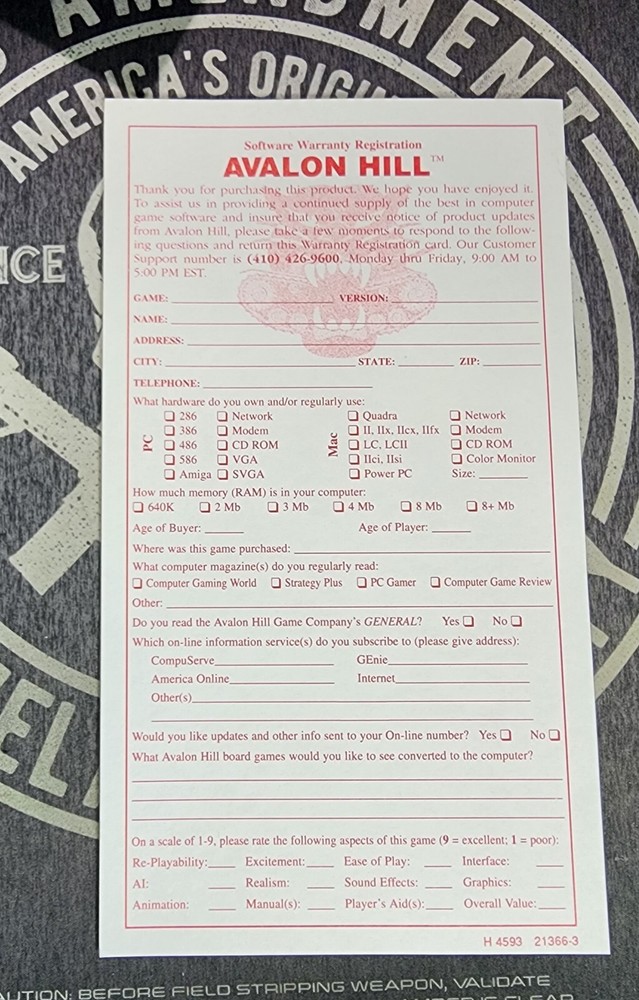 AMENDMENT
AMERICA'S ORIGI
Software Warranty Registration
AVALON HILL™
Thank you for purchasing this product. We hope you have enjoyed it.
To assist us in providing a continued supply of the best in computer
game software and insure that you receive notice of product updates
from Avalon Hill, please take a few moments to respond to the follow-
ing questions and return this Warranty Registration card. Our Customer
Support number is (410) 426-9600, Monday thru Friday, 9:00 AM to
5:00 PM EST.
GAME: VERSION:
NAME:
ADDRESS:
CITY: STATE: ZIP:
TELEPHONE:
What hardware do you own and/or regularly use:
PC
❏ 286 ❏ Network
❏ 386 ❏ Modem
❏ 486 ❏ CD ROM
❏ 586 ❏ VGA
❏ Amiga ❏ SVGA
Mac
❏ Quadra ❏ Network
❏ II, IIx, IIcx, IIfx ❏ Modem
❏ LC, LCII ❏ CD ROM
❏ IIci, IIsi ❏ Color Monitor
❏ Power PC Size:
How much memory (RAM) is in your computer:
❏ 640K ❏ 2 Mb ❏ 3 Mb ❏ 4 Mb ❏ 8 Mb ❏ 8+ Mb
Age of Buyer: Age of Player:
Where was this game purchased:
What computer magazine(s) do you regularly read:
❏ Computer Gaming World ❏ Strategy Plus ❏ PC Gamer ❏ Computer Game Review
Other:
Do you read the Avalon Hill Game Company's GENERAL? Yes ❏ No ❏
Which on-line information service(s) do you subscribe to (please give address):
CompuServe GEnie
America Online Internet
Other(s)
Would you like updates and other info sent to your On-line number? Yes ❏ No ❏
What Avalon Hill board games would you like to see converted to the computer?
On a scale of 1-9, please rate the following aspects of this game (9 = excellent; 1 = poor):
Re-Playability: Excitement: Ease of Play: Interface:
AI: Realism: Sound Effects: Graphics:
Animation: Manual(s): Player's Aid(s): Overall Value:
H 4593 21366-3
BEFORE FIELD STRIPPING WEAPON, VALIDATE